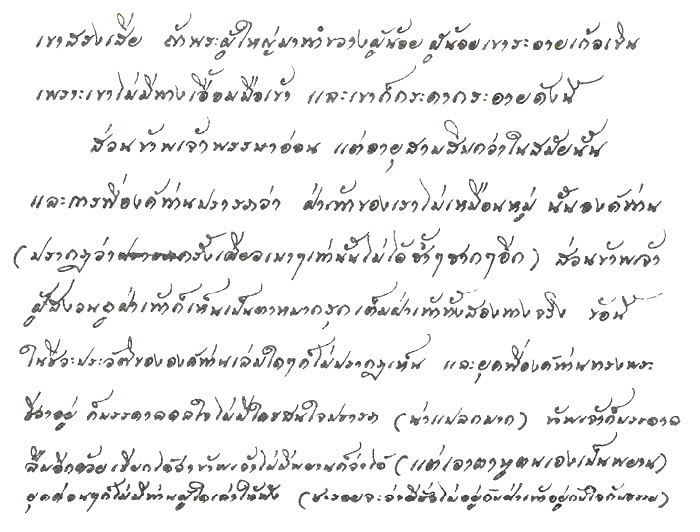 เขาสรงเสีย ถ้าพระผู้ใหญ่มาทำขวางผู้น้อย ผู้น้อยเขาระอายเก้อเขิน
เพราะเขาไม่มีทางเอื้อมมือเข้า และเขาก็กระดากกระอายดังนี้
ส่วนข้าพเจ้าพรรษาอ่อน แต่อายุสามสิบกว่าในสมัยนั้น
และการที่องค์ท่านปรารภว่า ฝ่าเท้าของเราไม่เหมือนหมู่ นั้นองค์ท่าน
(ปรากฏว่า ครั้งเดียวเบาๆเท่านั้นไม่ได้ซ้ำๆซากๆอีก) ส่วนข้าพเจ้า
ผู้สงวนถูฝ่าเท้าก็เห็นเป็นตาหมากรุก เต็มฝ่าเท้าทั้งสองทางจริง ข้อนี้
ในชีวะประวัติขององค์ท่านเล่มใดๆก็ไม่ปรากฏเห็น และยุคที่องค์ท่านทรงพระ
ชีวาอยู่ ก็บรรดาลดลใจไม่มีใครสนใจปรารภ (น่าแปลกมาก) ข้าพเจ้าก็บรรดาล
ลืมอีกด้วย เรียกได้ว่าข้าพเจ้าไม่มีพยานก็ว่าได้ (แต่เอาตาหูตนเองเป็นพยาน)
ยุคต่อนๆก็ไม่มีท่านผู้ใดเล่าให้ฟัง (ชะรอยจะว่าดีชั่วไม่อยู่กับฝ่าเท้าอยู่กับใจกับธรรม)